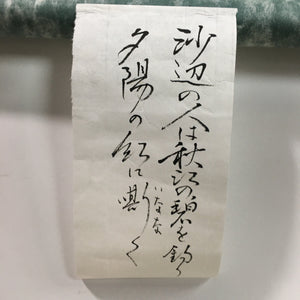 沙辺の人は秋江の碧を釣る
夕陽の紅に嘶く
いなな